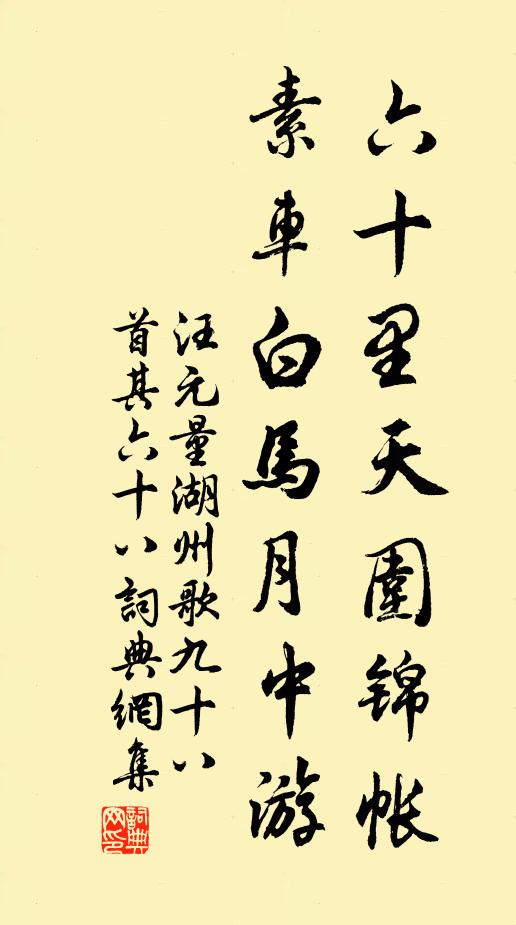 六十里天圍錦帳
素車白馬月中游
汪元量湖州歌九十八
首其六十八詞典網集
詞典網印